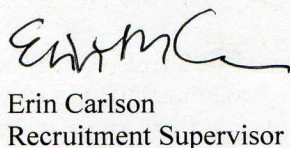 Erin Carlson
Recruitment Supervisor